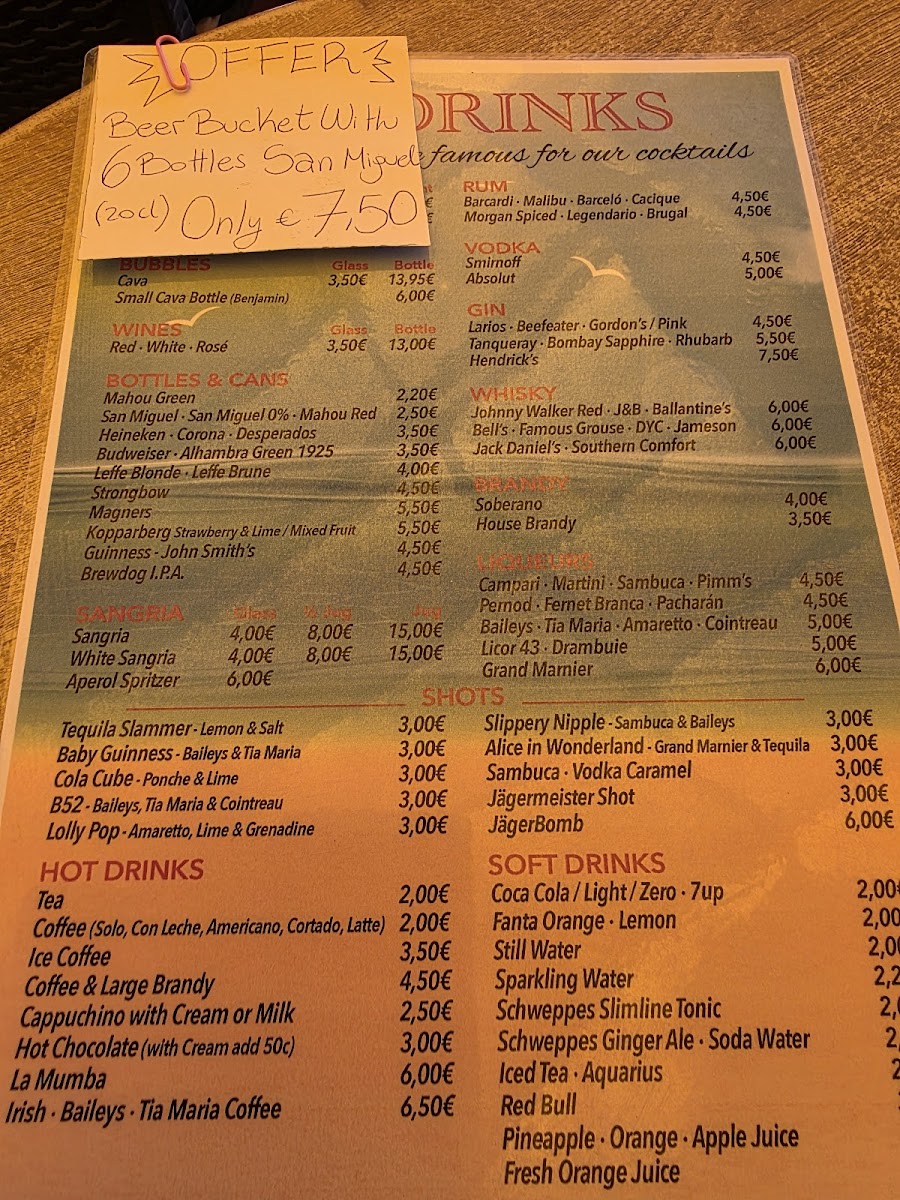 OFFER
Beer Bucket With
6 Bottles San Miguel
(20cl) Only € 7,50
DRINKS
famous for our cocktails
BUBBLES Glass Bottle
Cava 3,50€ 13,95€
Small Cava Bottle (Benjamin) 6,00€
WINES Glass Bottle
Red · White · Rosé 3,50€ 13,00€
BOTTLES & CANS
Mahou Green 2,20€
San Miguel · San Miguel 0% · Mahou Red 2,50€
Heineken · Corona · Desperados 3,50€
Budweiser · Alhambra Green 1925 3,50€
Leffe Blonde · Leffe Brune 4,00€
Strongbow 4,50€
Magners 5,50€
Kopparberg Strawberry & Lime / Mixed Fruit 5,50€
Guinness · John Smith's 4,50€
Brewdog I.P.A. 4,50€
SANGRIA Glass ½ Jug Jug
Sangria 4,00€ 8,00€ 15,00€
White Sangria 4,00€ 8,00€ 15,00€
Aperol Spritzer 6,00€
RUM
Barcardi · Malibu · Barceló · Cacique 4,50€
Morgan Spiced · Legendario · Brugal 4,50€
VODKA
Smirnoff 4,50€
Absolut 5,00€
GIN
Larios · Beefeater · Gordon's / Pink 4,50€
Tanqueray · Bombay Sapphire · Rhubarb 5,50€
Hendrick's 7,50€
WHISKY
Johnny Walker Red · J&B · Ballantine's 6,00€
Bell's · Famous Grouse · DYC · Jameson 6,00€
Jack Daniel's · Southern Comfort 6,00€
BRANDY
Soberano 4,00€
House Brandy 3,50€
LIQUEURS
Campari · Martini · Sambuca · Pimm's 4,50€
Pernod · Fernet Branca · Pacharán 4,50€
Baileys · Tia Maria · Amaretto · Cointreau 5,00€
Licor 43 · Drambuie 5,00€
Grand Marnier 6,00€
SHOTS
Tequila Slammer - Lemon & Salt 3,00€
Baby Guinness - Baileys & Tia Maria 3,00€
Cola Cube - Ponche & Lime 3,00€
B52 - Baileys, Tia Maria & Cointreau 3,00€
Lolly Pop - Amaretto, Lime & Grenadine 3,00€
Slippery Nipple - Sambuca & Baileys 3,00€
Alice in Wonderland - Grand Marnier & Tequila 3,00€
Sambuca · Vodka Caramel 3,00€
Jägermeister Shot 3,00€
JägerBomb 6,00€
HOT DRINKS
Tea 2,00€
Coffee (Solo, Con Leche, Americano, Cortado, Latte) 2,00€
Ice Coffee 3,50€
Coffee & Large Brandy 4,50€
Cappuchino with Cream or Milk 2,50€
Hot Chocolate (with Cream add 50c) 3,00€
La Mumba 6,00€
Irish · Baileys · Tia Maria Coffee 6,50€
SOFT DRINKS
Coca Cola / Light / Zero · 7up 2,00€
Fanta Orange · Lemon 2,00
Still Water 2,0
Sparkling Water 2,2
Schweppes Slimline Tonic 2,
Schweppes Ginger Ale · Soda Water 2,
Iced Tea · Aquarius 2
Red Bull
Pineapple · Orange · Apple Juice
Fresh Orange Juice